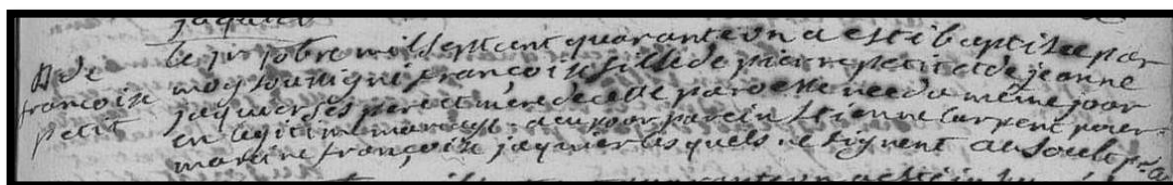 B de
francoise
petit
le pr jobre mil sept cent quarante un a esté baptisée par
moy soussigné francoise fille de pierre petit et de jeanne
jaquier ses pere et mere de cette paroesse née du même jour
en legitime mariage. a eu pour parein Etienne carpent pour
mareine françoise jaquier lesquels ne signent